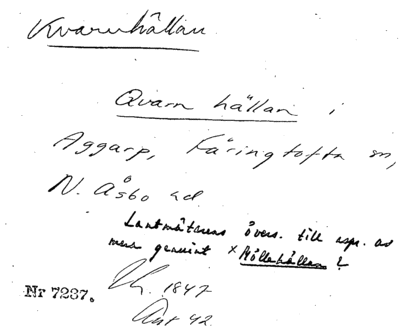 Kvarnhällan
Qvarn hällan i
Aggarp, Färingtofta sn,
N. Åsbo hd
Lantmätarens övers. till rspr. av
mera genuint × Möllehällan?
Nr 7237. Uh. 1847
Akt 42